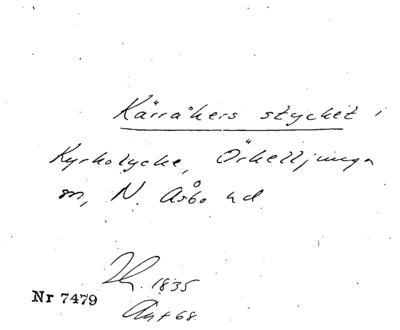 Kärråkers stycket i
Kyrkolycke, Örkelljunga
sn, N. Åsbo hd
1835
Nr 7479
Akt 68